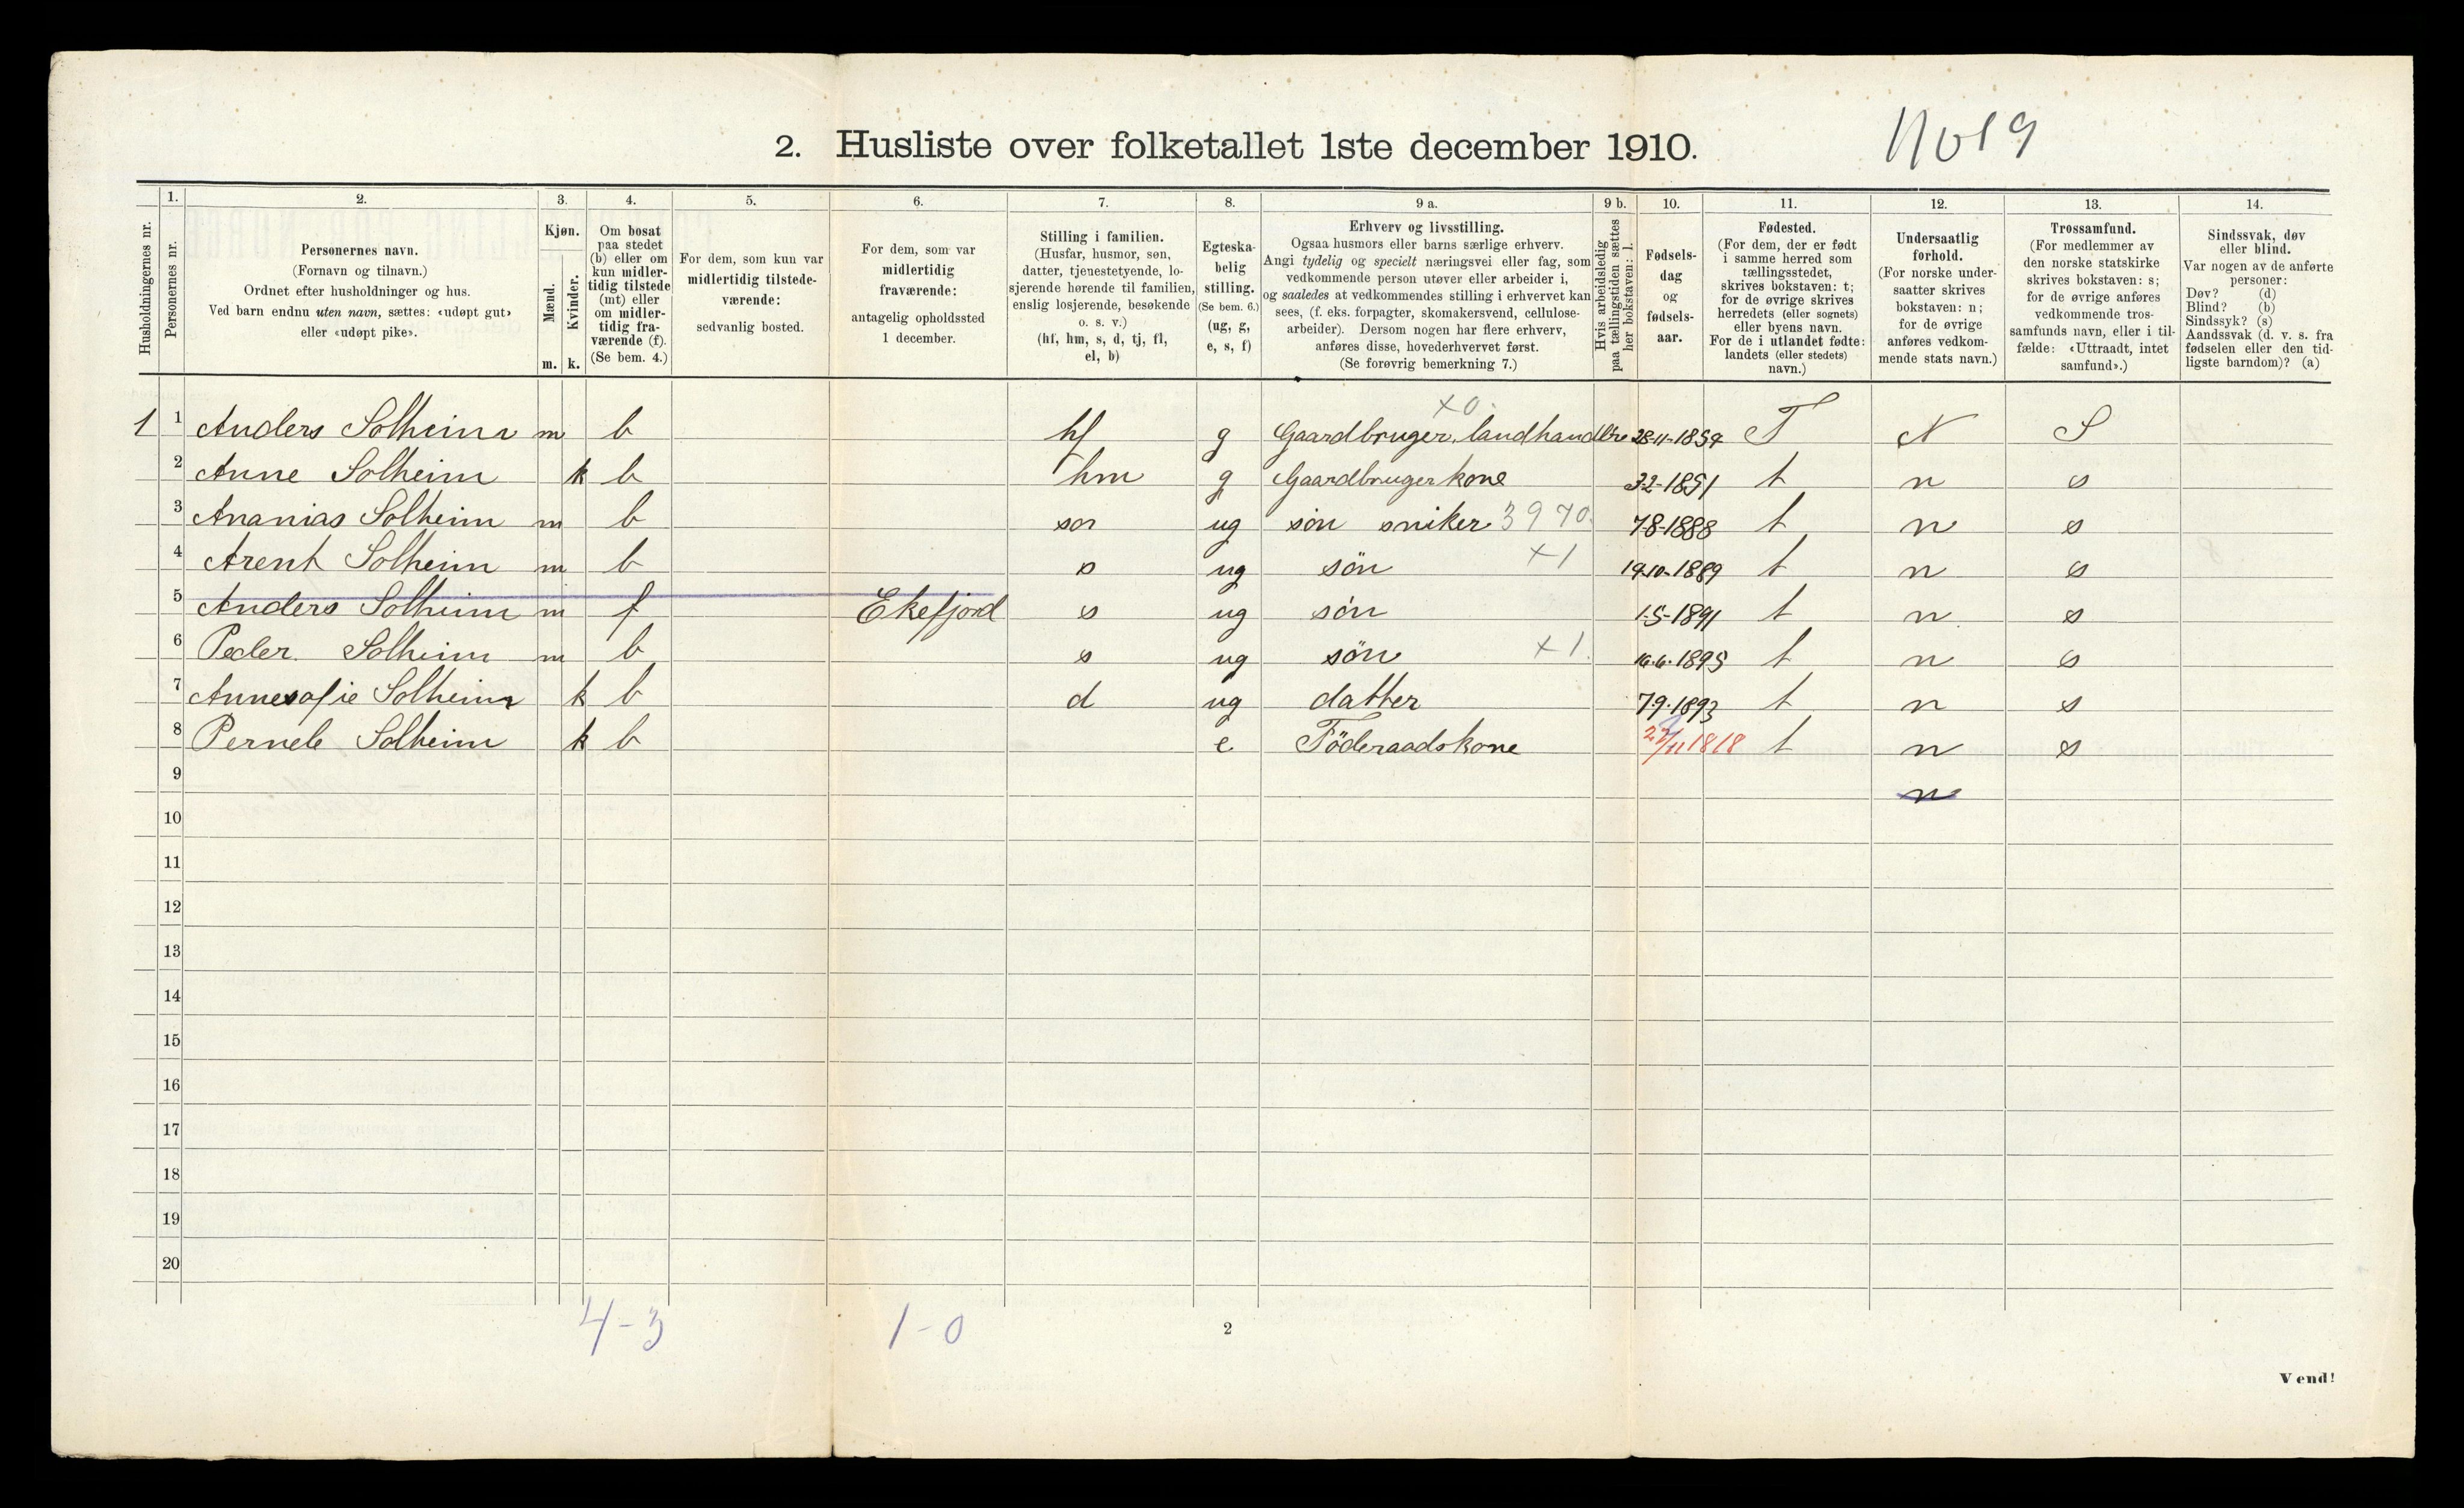 2. Husliste over folketallet 1ste december 1910.
No 19
1. 2. 3. 4. 5. 6. 7. 8. 9 a. 9 b. 10. 11. 12. 13. 14.
Husholdningernes nr.
Personernes nr.
Personernes navn.
(Fornavn og tilnavn.)
Ordnet efter husholdninger og hus.
Ved barn endnu uten navn, sættes: «udøpt gut»
eller «udøpt pike».
Kjøn.
Mænd.
Kvinder.
m. k.
Om bosat
paa stedet
(b) eller om
kun midler-
tidig tilstede
(mt) eller
om midler-
tidig fra-
værende (f).
(Se bem. 4.)
For dem, som kun var
midlertidig tilstede-
værende:
sedvanlig bosted.
For dem, som var
midlertidig
fraværende:
antagelig opholdssted
1 december.
Stilling i familien.
(Husfar, husmor, søn,
datter, tjenestetyende, lo-
sjerende hørende til familien,
enslig losjerende, besøkende
o. s. v.)
(hf, hm, s, d, tj, fl,
el, b)
Egteska-
belig
stilling.
(Se bem. 6.)
(ug, g,
e, s, f)
Erhverv og livsstilling.
Ogsaa husmors eller barns særlige erhverv.
Angi tydelig og specielt næringsvei eller fag, som
vedkommende person utøver eller arbeider i,
og saaledes at vedkommendes stilling i erhvervet kan
sees, (f. eks. forpagter, skomakersvend, cellulose-
arbeider). Dersom nogen har flere erhverv,
anføres disse, hovederhvervet først.
(Se forøvrig bemerkning 7.)
Hvis arbeidsledig
paa tællingstiden sættes
her bokstaven: l.
Fødsels-
dag
og
fødsels-
aar.
Fødested.
(For dem, der er født
i samme herred som
tællingsstedet,
skrives bokstaven: t;
for de øvrige skrives
herredets (eller sognets)
eller byens navn.
For de i utlandet fødte:
landets (eller stedets)
navn.)
Undersaatlig
forhold.
(For norske under-
saatter skrives
bokstaven: n;
for de øvrige
anføres vedkom-
mende stats navn.)
Trossamfund.
(For medlemmer av
den norske statskirke
skrives bokstaven: s;
for de øvrige anføres
vedkommende tros-
samfunds navn, eller i til-
fælde: «Uttraadt, intet
samfund».)
Sindssvak, døv
eller blind.
Var nogen av de anførte
personer:
Døv? (d)
Blind? (b)
Sindssyk? (s)
Aandssvak (d. v. s. fra
fødselen eller den tid-
ligste barndom)? (a)
x0.
1 1 Anders Solheim m b hf g Gaardbruger, landhandlere 28-11-1854 T N S
2 Anne Solheim k b hm g Gaardbrugerkone 3-2-1851 t n s
3 Ananias Solheim m b søn ug søn sniker 3970. 7-8-1888 t n s
4 Arent Solheim m b s ug søn x1 19-10-1889 t n s
5 Anders Solheim m f Ekefjord s ug søn 1-5-1891 t n s
6 Peder Solheim m b s ug søn x1. 16-6-1895 t n s
7 Annesofie Solheim k b d ug datter 7-9-1893 t n s
8 Pernele Solheim k b e Föderaadskone 22/11 1818 t n s
9 n
10
11
12
13
14
15
16
17
18
19
20
4-3 1-0
2
Vend!